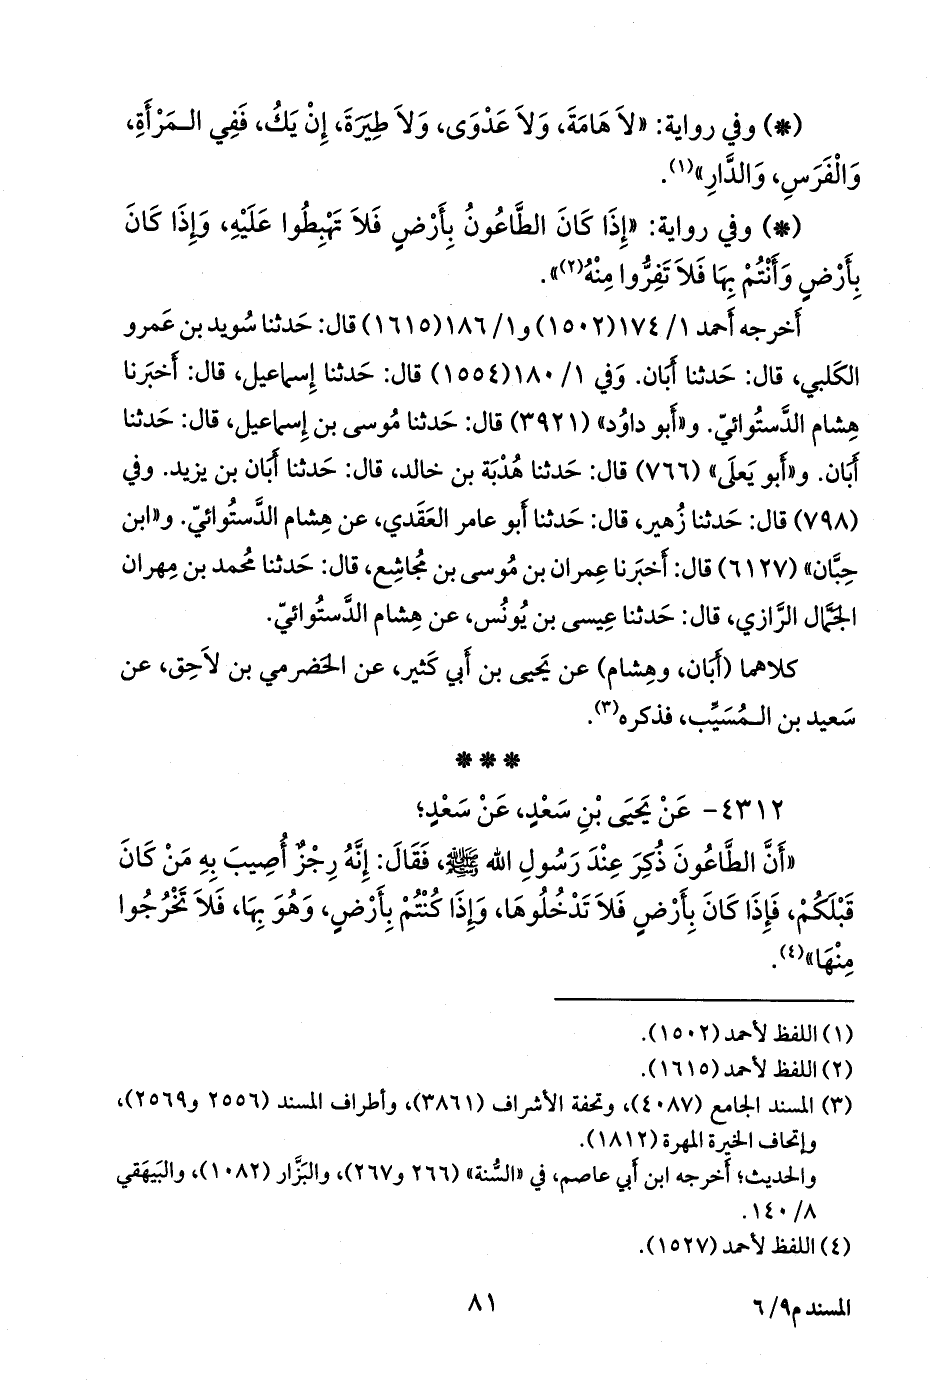 (*) وفي رواية: «لاَ هَامَةَ، وَلاَ عَدْوَى، وَلاَ طِيَرَةَ، إِنْ يَكُ، فَفِي الـمَرْأَةِ،
وَالْفَرَسِ، وَالدَّارِ»(١).
(*) وفي رواية: «إِذَا كَانَ الطَّاعُونُ بِأَرْضٍ فَلاَ تَهْبِطُوا عَلَيْهِ، وَإِذَا كَانَ
بِأَرْضٍ وَأَنْتُمْ بِهَا فَلاَ تَفِرُّوا مِنْهُ(٢)».
أَخرجه أَحمد ١/ ١٧٤(١٥٠٢) و١/ ١٨٦(١٦١٥) قال: حَدثنا سُويد بن عَمرو
الكَلبي، قال: حَدثنا أَبَان. وَفي ١/ ١٨٠(١٥٥٤) قال: حَدثنا إِسماعيل، قال: أَخبَرنا
هِشام الدَّستُوائيّ. و«أَبو داوُد» (٣٩٢١) قال: حَدثنا مُوسى بن إِسماعيل، قال: حَدثنا
أَبَان. و«أَبو يَعلَى» (٧٦٦) قال: حَدثنا هُدْبَة بن خالد، قال: حَدثنا أَبَان بن يزيد. وفي
(٧٩٨) قال: حَدثنا زُهير، قال: حَدثنا أَبو عامر العَقَدي، عن هِشام الدَّستُوائيّ. و«ابن
حِبَّان» (٦١٢٧) قال: أَخبَرنا عِمران بن مُوسى بن مُجاشِع، قال: حَدثنا مُحمد بن مِهران
الجَمَّال الرَّازي، قال: حَدثنا عِيسى بن يُونُس، عن هِشام الدَّستُوائيّ.
كلاهما (أَبَان، وهِشام) عن يَحيى بن أَبي كَثير، عن الحَضرمي بن لاَحِق، عن
سَعيد بن الـمُسَيِّب، فذكره(٣).
* * *
٤٣١٢- عَنْ يَحْيَى بْنِ سَعْدٍ، عَنْ سَعْدٍ؛
«أَنَّ الطَّاعُونَ ذُكِرَ عِنْدَ رَسُولِ الله ﷺ، فَقَالَ: إِنَّهُ رِجْزٌ أُصِيبَ بِهِ مَنْ كَانَ
قَبْلَكُمْ، فَإِذَا كَانَ بِأَرْضٍ فَلاَ تَدْخُلُوهَا، وَإِذَا كُنْتُمْ بِأَرْضٍ، وَهُوَ بِهَا، فَلاَ تَخْرُجُوا
مِنْهَا»(٤).
(١) اللفظ لأحمد (١٥٠٢).
(٢) اللفظ لأحمد (١٦١٥).
(٣) المسند الجامع (٤٠٨٧)، وتحفة الأشراف (٣٨٦١)، وأطراف المسند (٢٥٥٦ و٢٥٦٩)،
وإتحاف الخيرة المهرة (١٨١٢).
والحديث؛ أَخرجه ابن أَبي عاصم، في «السُّنة» (٢٦٦ و٢٦٧)، والبَزَّار (١٠٨٢)، والبَيهَقي
٨/ ١٤٠.
(٤) اللفظ لأحمد (١٥٢٧).
المسند م٩/ ٦
٨١